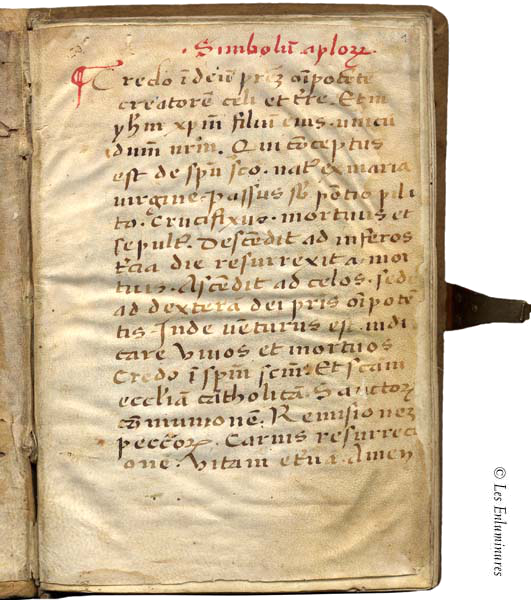 · Simbolū aploꝝ ·
Credo ī deū prēz oīpotēte
creatorē celi et tr̄e. Et in
yhm xpm̄ filiuꝫ eius · unicū
dum̄ nr̄m. Qui cōceptus
est de spū sc̄o · nat᷒ ex maria
virgine · passus sb̄ pōtio pila
to · Crucifixus · mortuus et
sepult᷒. Descēdit ad inferos
t̄cia die resurrexit a mor
tuis. Ascēdit ad celos · sedet
ad dexterā dei pr̄is oīpotē
tis Inde vēturus est · iudi
care vivos et mortuos
Credo ī spm̄ scm̄ · Et scam
eccliā catholicā. Sanctoꝝ
cōmunionē. Remisionez
peccōꝝ. Carnis resurrecti
one · Vitam etnā · Amen
© Les Enluminures